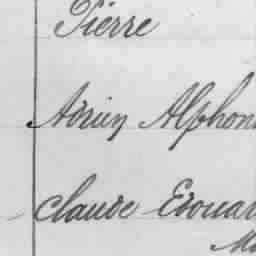 Pierre
Adrien Alphon
Claude Edouar